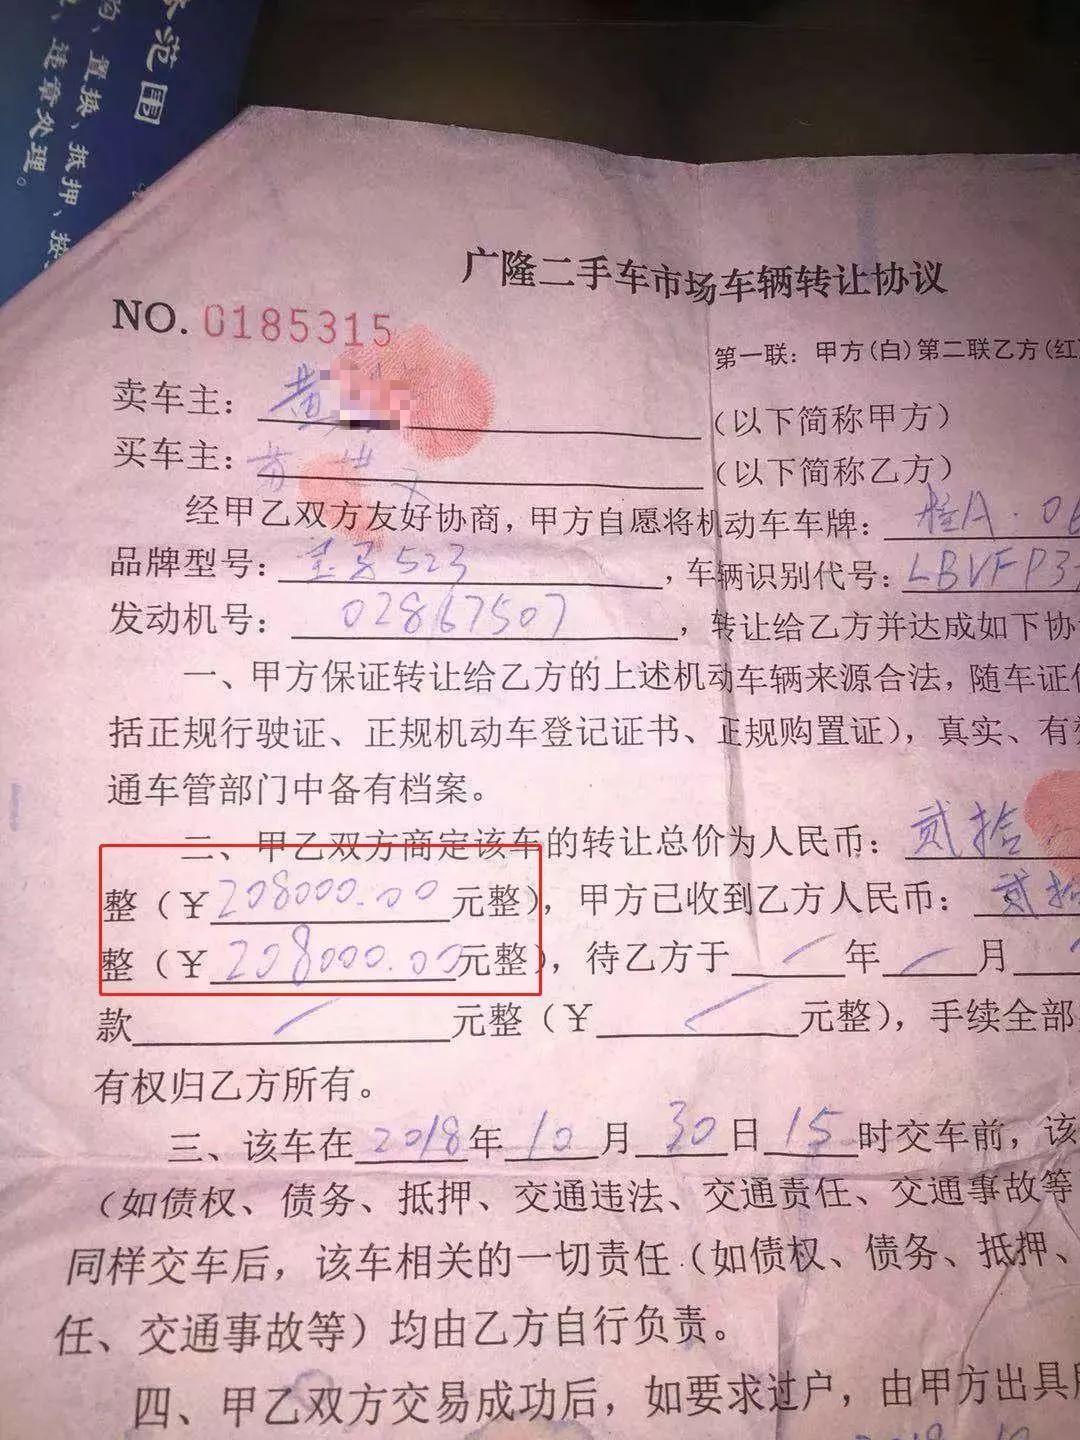 范围
、置换、抵押、按
、违章处理。
广隆二手车市场车辆转让协议
NO. 0185315
第一联：甲方(白)第二联乙方(红
卖车主：黄（以下简称甲方）
买车主：（以下简称乙方）
经甲乙双方友好协商，甲方自愿将机动车车牌：桂A·06
品牌型号：宝马523，车辆识别代号：LBVFP3
发动机号：02867507，转让给乙方并达成如下协
一、甲方保证转让给乙方的上述机动车辆来源合法，随车证
括正规行驶证、正规机动车登记证书、正规购置证），真实、有
通车管部门中备有档案。
二、甲乙双方商定该车的转让总价为人民币：贰拾
整（￥208000.00元整），甲方已收到乙方人民币：贰拾
整（￥208000.00元整），待乙方于／年／月
款／元整（￥／元整），手续全部
有权归乙方所有。
三、该车在2018年10月30日15时交车前，该
（如债权、债务、抵押、交通违法、交通责任、交通事故等
同样交车后，该车相关的一切责任（如债权、债务、抵押、
任、交通事故等）均由乙方自行负责。
四、甲乙双方交易成功后，如要求过户，由甲方出具